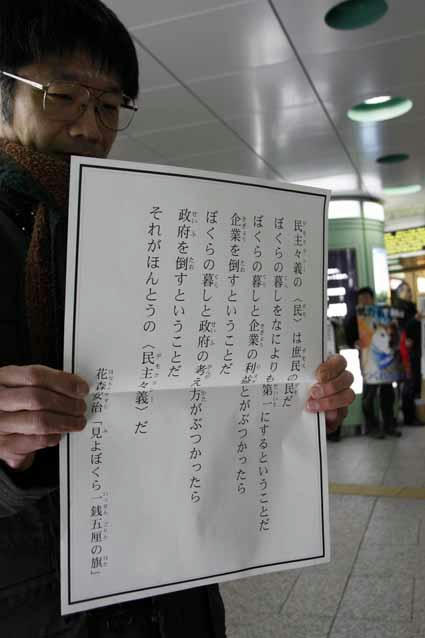 民主々義の〈民〉は庶民の民だ
ぼくらの暮しをなによりも第一にするということだ
ぼくらの暮しと企業の利益とがぶつかったら
企業を倒すということだ
ぼくらの暮しと政府の考え方がぶつかったら
政府を倒すということだ
それがほんとうの〈民主々義〉だ
花森安治「見よぼくら一銭五厘の旗」